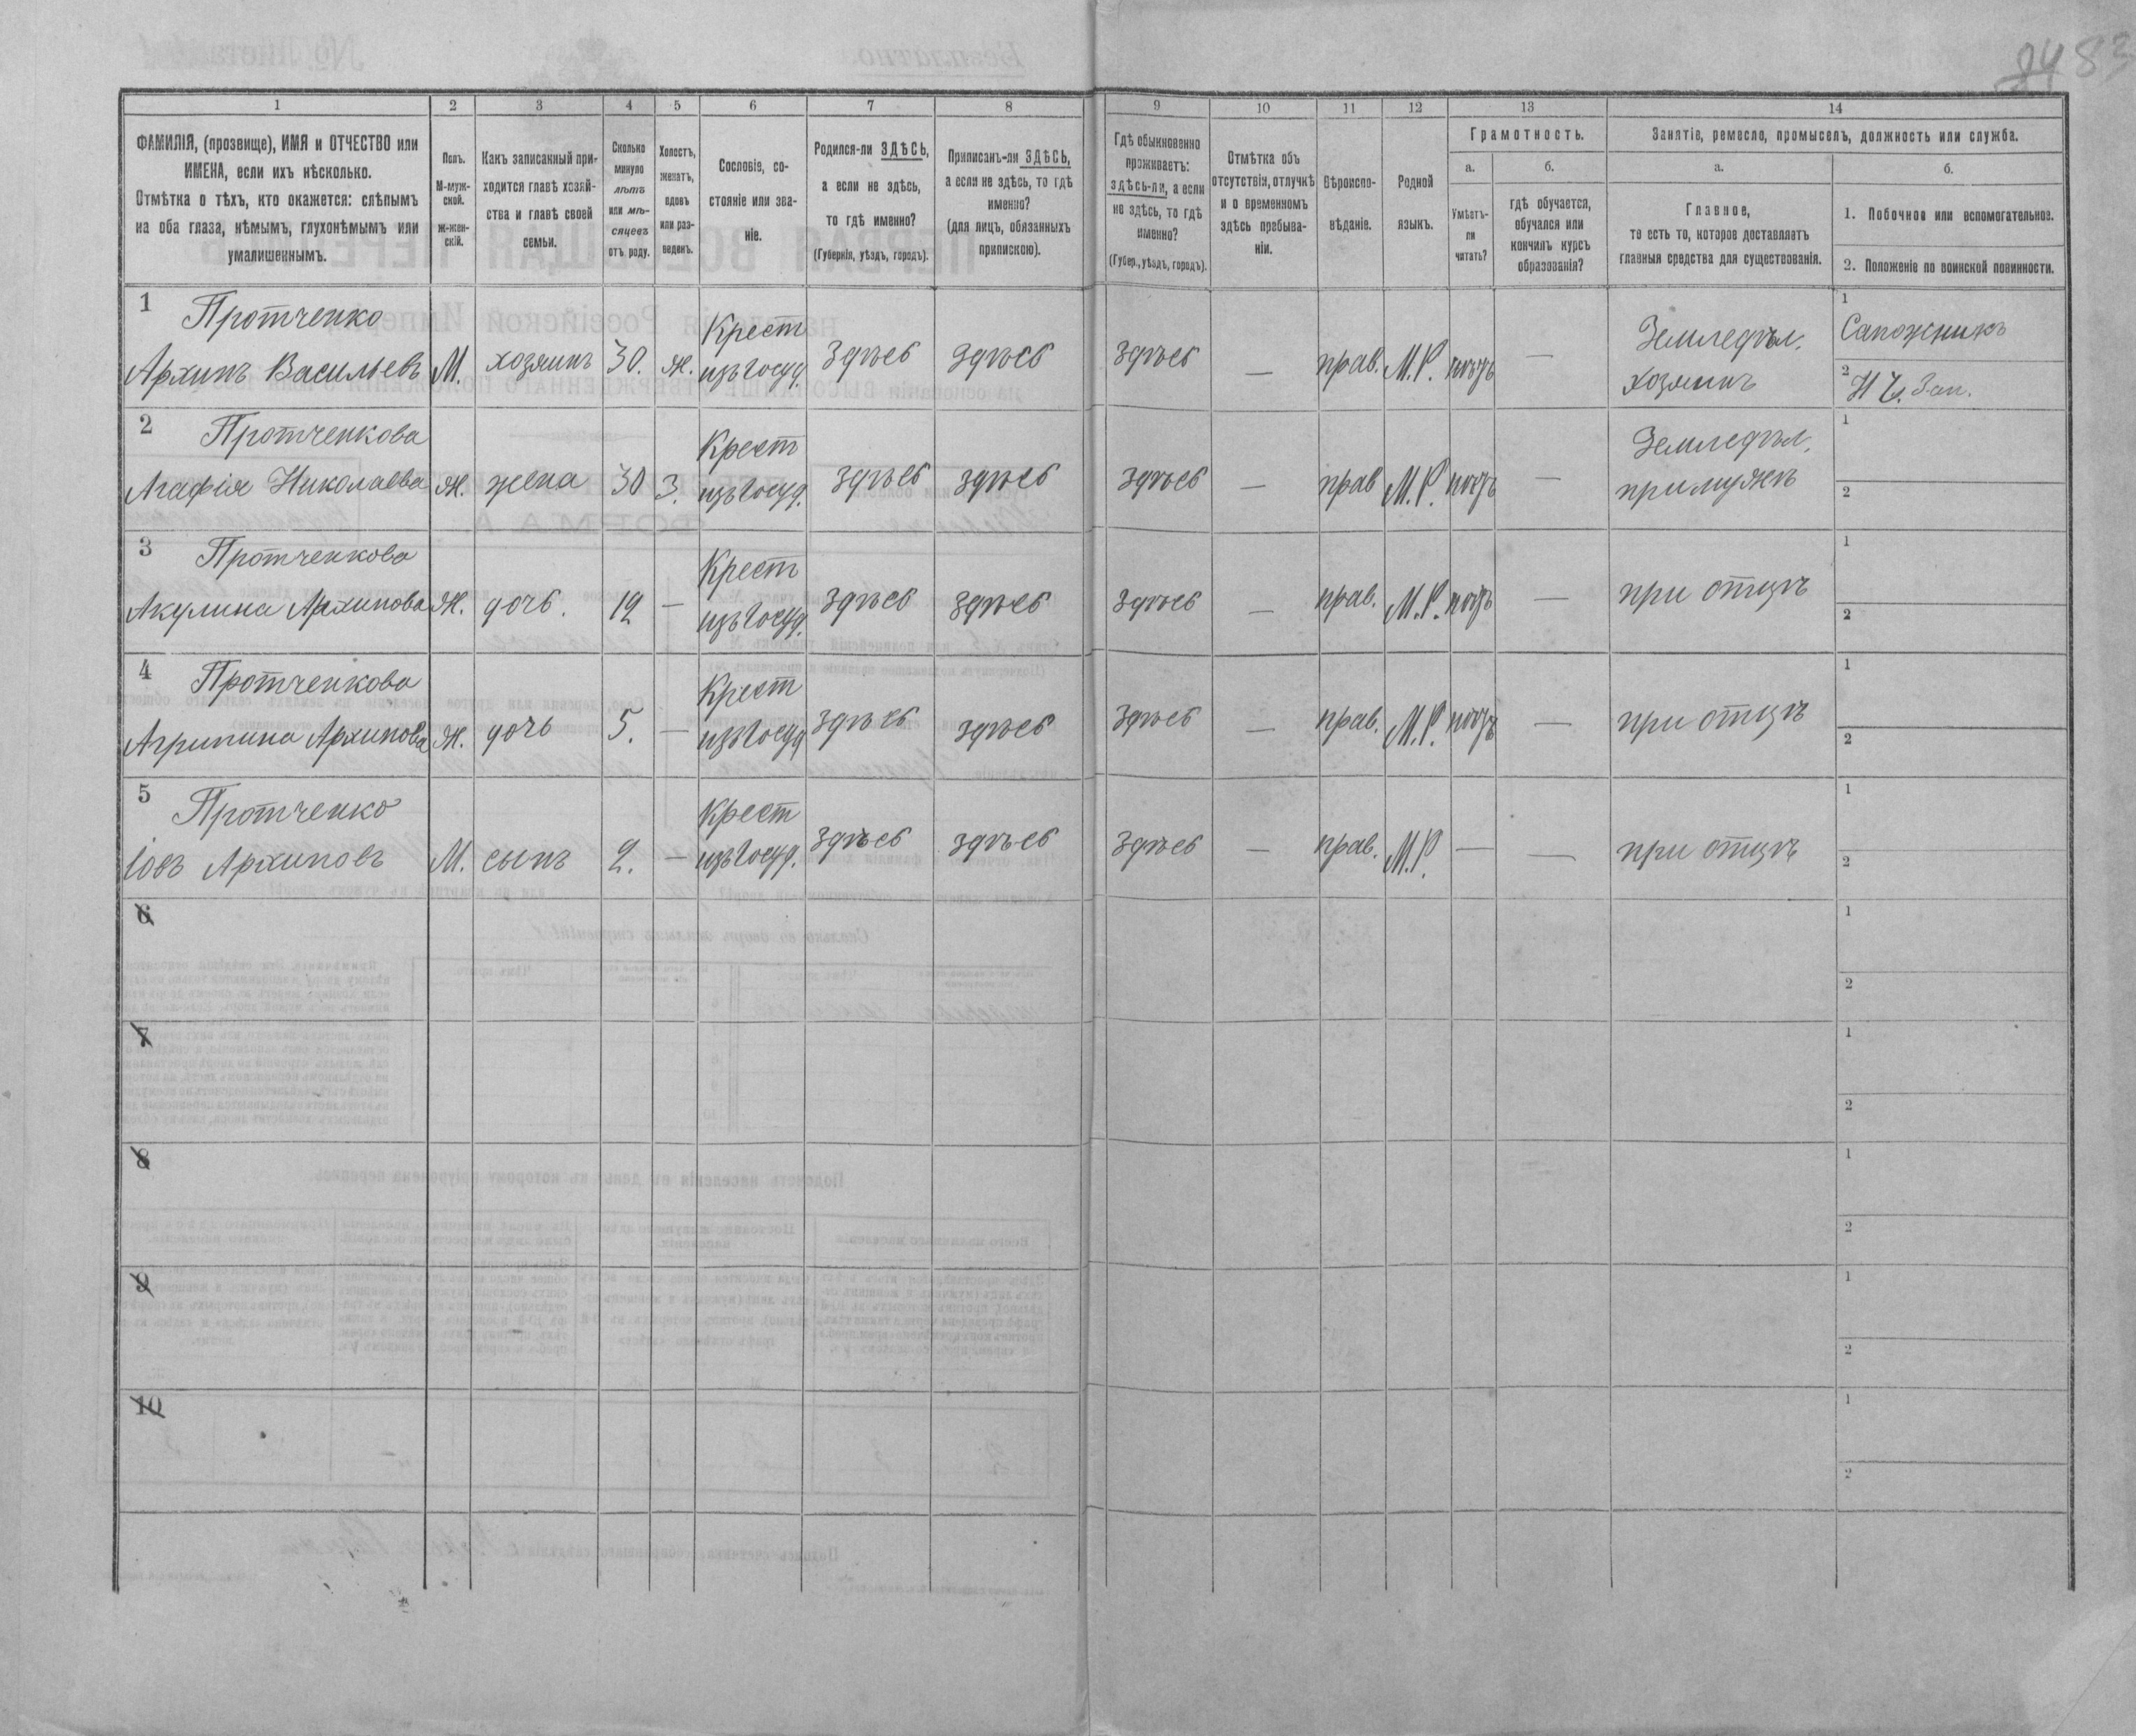 84 83
1 2 3 4 5 6 7 8 9 10 11 12 13 14
ФАМИЛІЯ, (прозвище), ИМЯ и ОТЧЕСТВО или
ИМЕНА, если ихъ нѣсколько.
Отмѣтка о тѣхъ, кто окажется: слѣпымъ
на оба глаза, нѣмымъ, глухонѣмымъ или
умалишеннымъ.
Полъ.
М-муж-
ской.
Ж-жен-
скій.
Какъ записанный при-
ходится главѣ хозяй-
ства и главѣ своей
семьи.
Сколько
минуло
лѣтъ
или мѣ-
сяцевъ
отъ роду.
Холостъ,
женатъ,
вдовъ
или раз-
веденъ.
Сословіе, со-
стояніе или зва-
ніе.
Родился-ли ЗДѢСЬ,
а если не здѣсь,
то гдѣ именно?
(Губернія, уѣздъ, городъ).
Приписанъ-ли ЗДѢСЬ,
а если не здѣсь, то гдѣ
именно?
(для лицъ, обязанныхъ
припискою).
Гдѣ обыкновенно
проживаетъ:
здѣсь-ли, а если
не здѣсь, то гдѣ
именно?
(Губер., уѣздъ, городъ).
Отмѣтка объ
отсутствіи, отлучкѣ
и о временномъ
здѣсь пребыва-
ніи.
Вѣроиспо-
вѣданіе.
Родной
языкъ.
Грамотность.
а.
Умѣетъ-
ли
читать?
б.
гдѣ обучается,
обучался или
кончилъ курсъ
образованія?
Занятіе, ремесло, промыселъ, должность или служба.
а.
Главное,
то есть то, которое доставляетъ
главныя средства для существованія.
б.
1. Побочное или вспомогательное.
2. Положеніе по воинской повинности.
1 Протченко Крест Земледѣл. 1 Сапожникъ
Архипъ Васильевъ М. хозяинъ 30. Ж. изъ госуд. здѣсь здѣсь здѣсь — прав. М.Р. — хозяинъ 2
2 Протченкова Крест Земледѣл. 1
Агафія Николаева Ж. жена 30 З. изъ госуд. здѣсь здѣсь здѣсь — прав М.Р. — при мужѣ 2
3 Протченкова Крест 1
Акулина Архипова Ж. дочь. 12 — изъ госуд. здѣсь здѣсь здѣсь — прав. М.Р. — при отцѣ 2
4 Протченкова Крест 1
Агрипина Архипова Ж. дочь 5. — изъ госуд здѣсь здѣсь здѣсь — прав. М.Р. — при отцѣ 2
5 Протченко Крест 1
Іовъ Архиповъ М. сынъ 2. — изъ госуд. здѣсь здѣсь здѣсь — прав. М.Р. — — при отцѣ 2
6 1
2
7 1
2
8 1
2
9 1
2
10 1
2